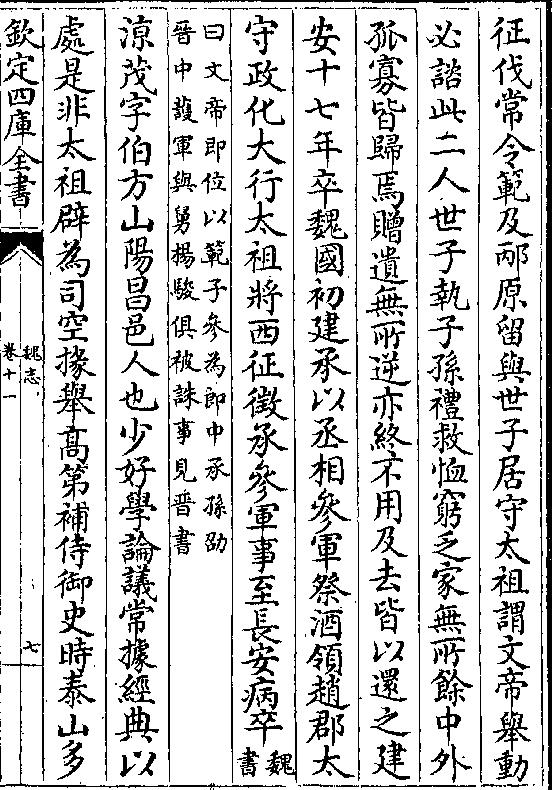 征伐常令範及邴原留與世子居守太祖謂文帝舉動
必諮此二人世子執子孫禮救恤窮乏家無所餘中外
孤寡皆歸焉贈遺無所逆亦終不用及去皆以還之建
安十七年卒魏國初建承以丞相參軍祭酒領趙郡太
守政化大行太祖將西征徵承參軍事至長安病卒魏
書
曰文帝即位以範子參為郎中承孫邵
晉中䕶軍與舅楊駿俱被誅事見晉書
涼茂字伯方山陽昌邑人也少好學論議常據經典以
處是非太祖辟為司空掾舉高第補侍御史時泰山多
欽定四庫全書
魏志
卷十一
七